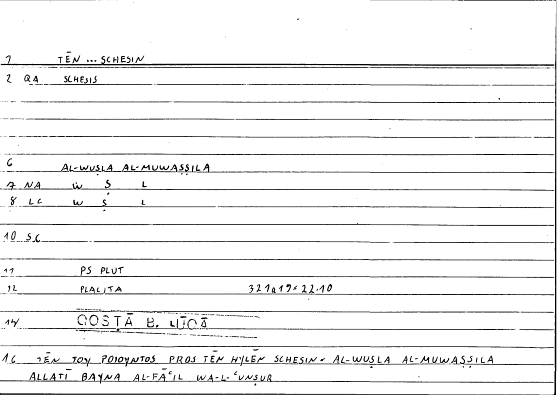 1 TĒN ... SCHESIN
2 QA SCHESIS
6 AL-WUṢLA AL-MUWAṢṢILA
7 NA W Ṣ L
8 LC W Ṣ L
10 SC
11 PS PLUT
12 PLACITA 321a19=22.10
14 QOSṬĀ B. LŪQĀ
16 TĒN TOY POIOYNTOS PROS TĒN HYLĒN SCHESIN = AL-WUṢLA AL-MUWAṢṢILA
ALLATĪ BAYNA AL-FĀʿIL WA-L-ʿUNṢUR